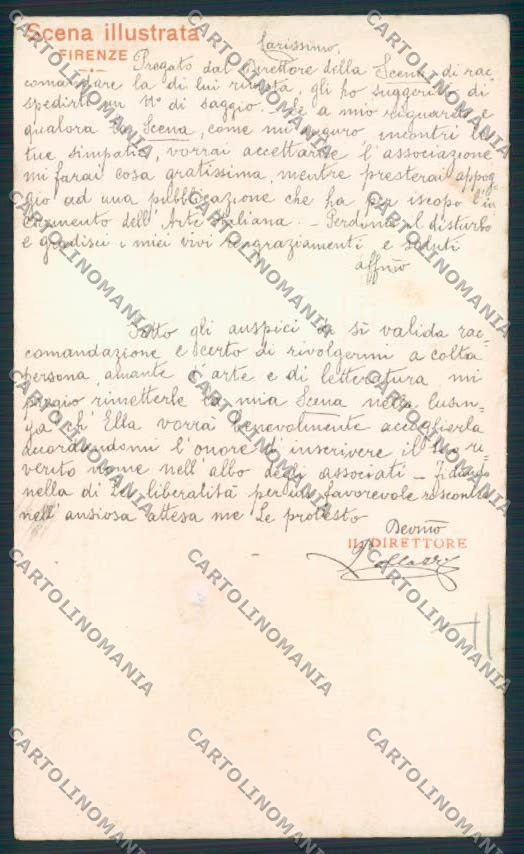 Scena illustrata
FIRENZE
Carissimo,
Pregato dal Direttore della Scena di rac-
comandare la di lui rivista, gli ho suggerito di
spedirti un N° di saggio. Se a mio riguardo e
qualora la Scena, come mi auguro incontri le
tue simpatie, vorrai accettarne l'associazione
mi farai cosa gratissima, mentre presterai appog-
gio ad una pubblicazione che ha per iscopo l'in
cremento dell'Arte Italiana. - Perdona il disturbo
e gradisci i miei vivi ringraziamenti e saluti
affmo
Sotto gli auspici di sì valida rac-
comandazione e certo di rivolgermi a colta
persona, amante d'arte e di letteratura, mi
pregio rimetterle la mia Scena nella lusin-
ga ch'Ella vorrà benevolmente accoglierla
accordandomi l'onore d'inscrivere il Suo ri-
verito nome nell'albo degli associati - Fidando
nella di Lei liberalità per un favorevole riscontro
nell'ansiosa attesa me Le protesto
Devmo
IL DIRETTORE
CARTOLINOMANIA